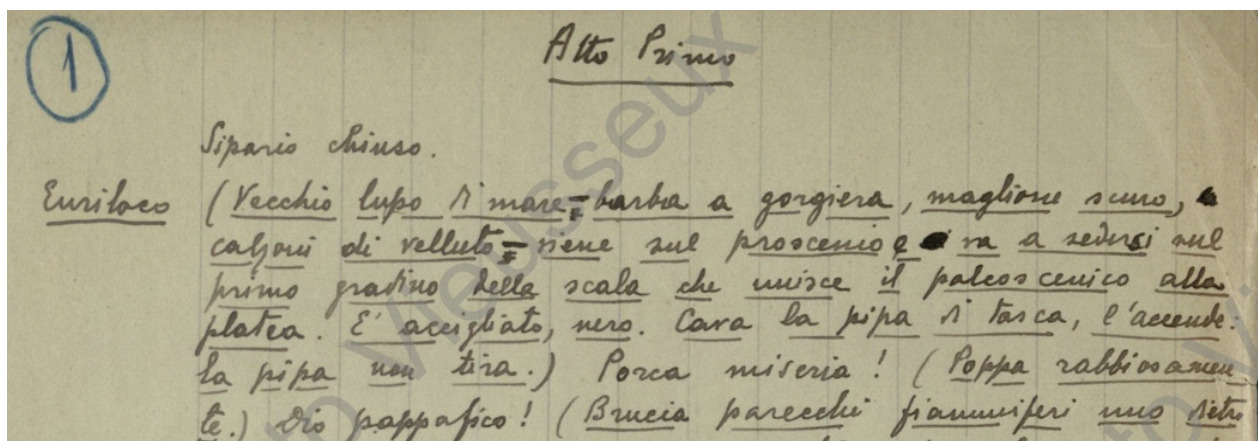 1
Atto Primo
Sipario chiuso.
Euriloco (Vecchio lupo di mare = barba a gorgiera, maglione scuro,
calzoni di velluto = viene sul proscenio e va a sedersi sul
primo gradino della scala che unisce il palcoscenico alla
platea. E' accigliato, nero. Cava la pipa di tasca, l'accende.
la pipa non tira.) Porca miseria! (Poppa rabbiosamen
te.) Dio pappafico! (Brucia parecchi fiammiferi uno dietro
Vieusseux